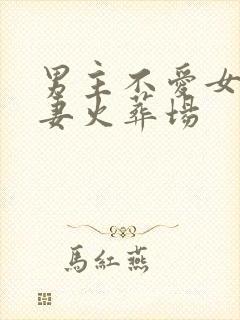 男主不愛女
妻火葬場
馬紅燕